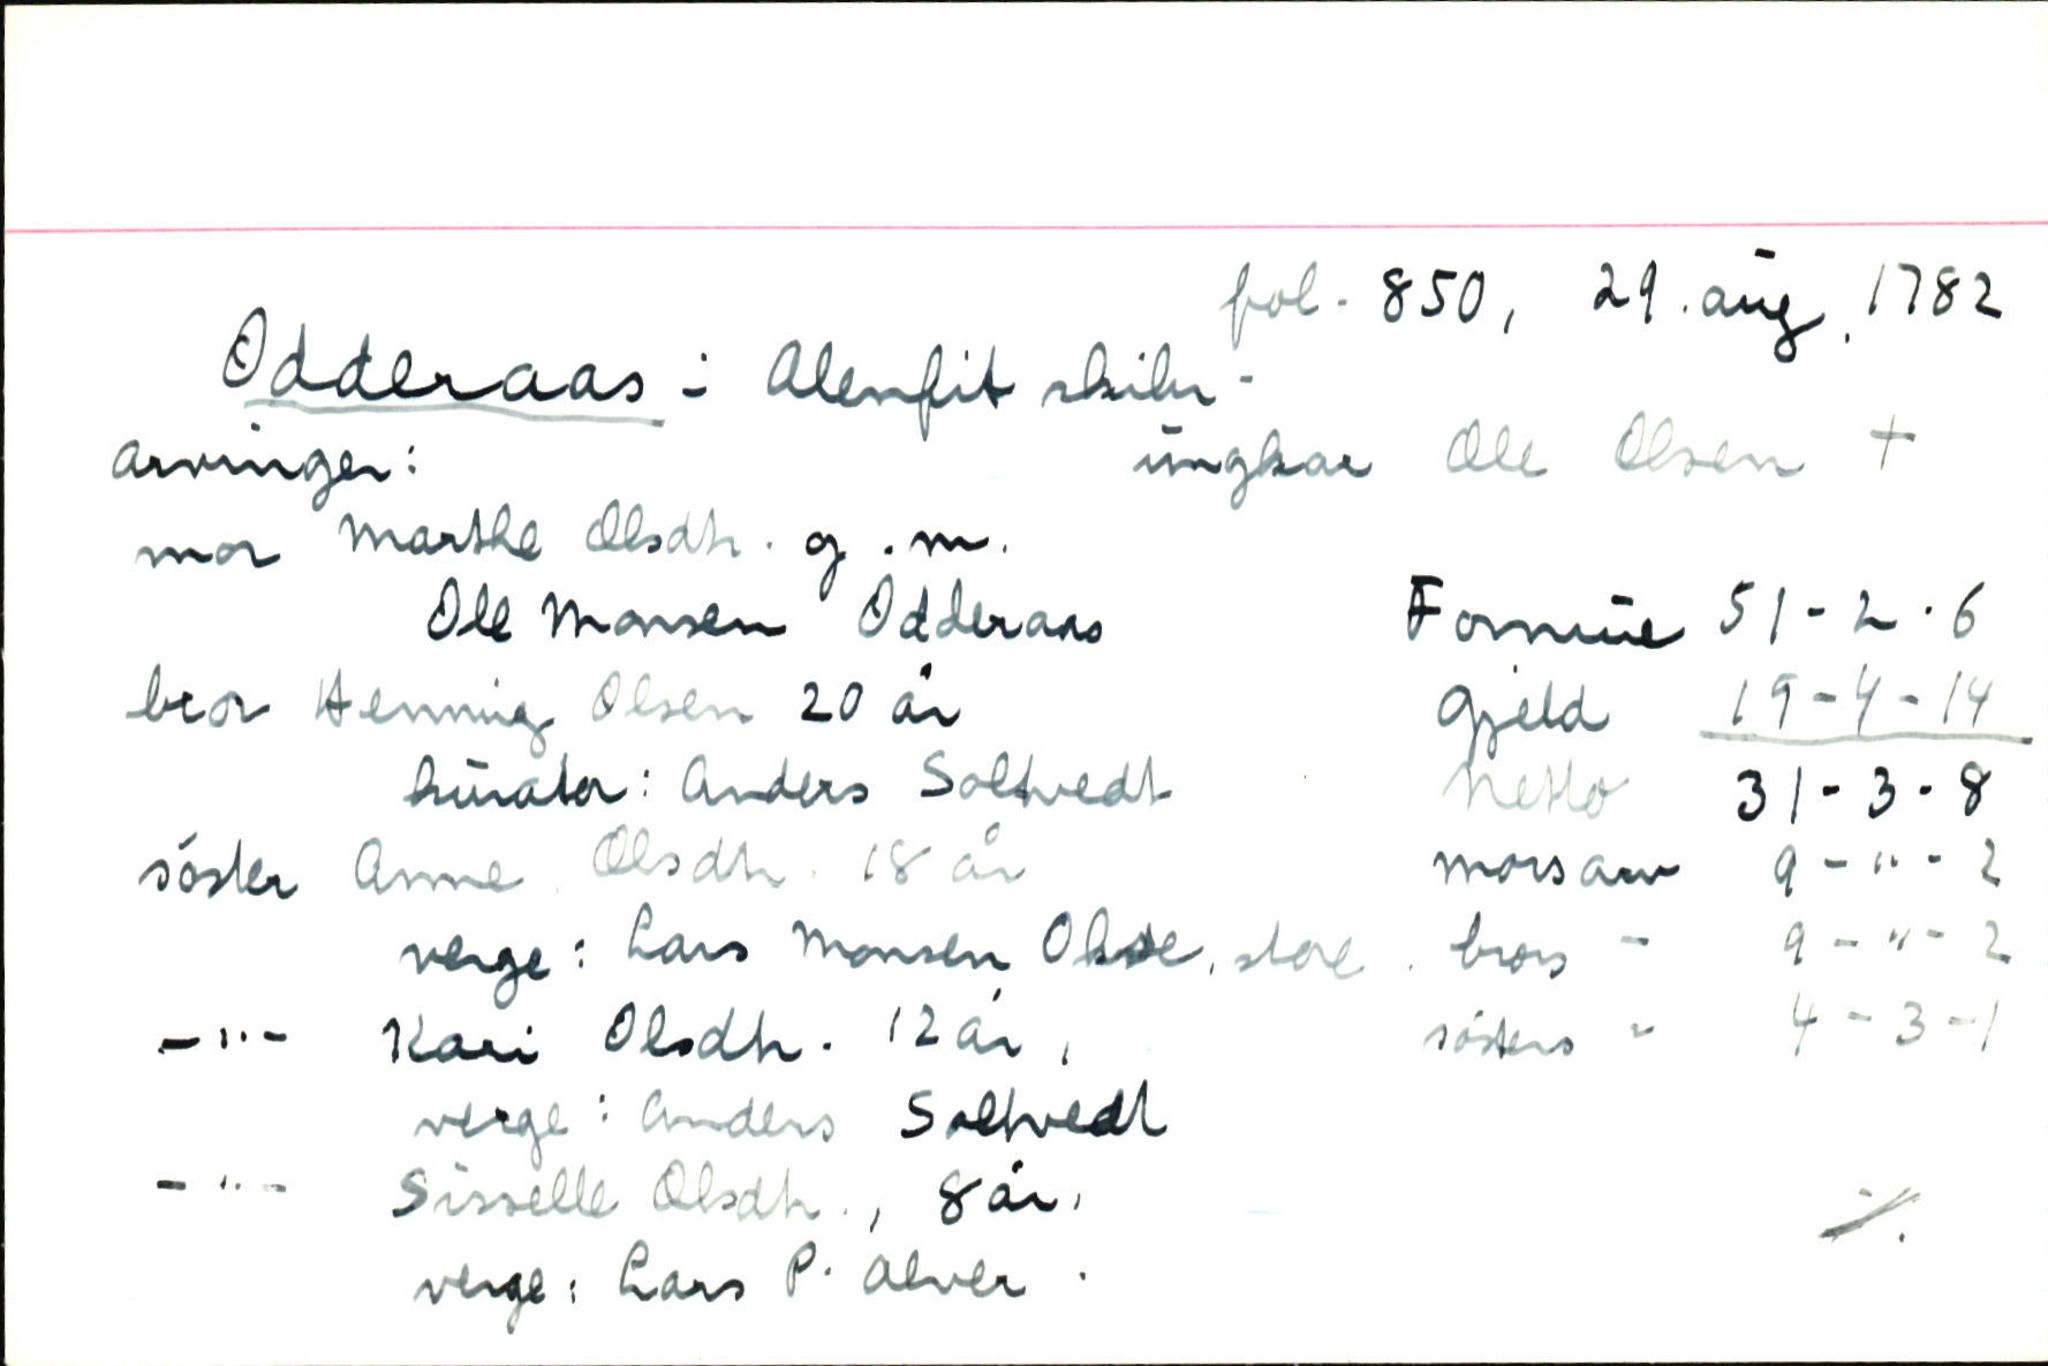 fol. 850, 29. aug. 1782
Odderaas i Alenfit skibr -
arvinger: ungkar Ole Olsen +
mor Marthe Olsdtr. g. m.
Ole Monsen Odderaas Formue 51 - 2 - 6
bror Henning Olsen 20 år Gjeld 19 - 4 - 14
kurator: Anders Soltvedt Netto 31 - 3 - 8
söster Anne Olsdtr. 18 år morsarv 9 - " - 2
verge: Lars Monsen store. brors - 9 - " - 2
- " - Kari Olsdtr. 12 år, sösters - 4 - 3 - 1
verge: Anders Soltvedt
- " - Sisselle Olsdtr., 8 år,
verge: Lars P. Alver. ./.